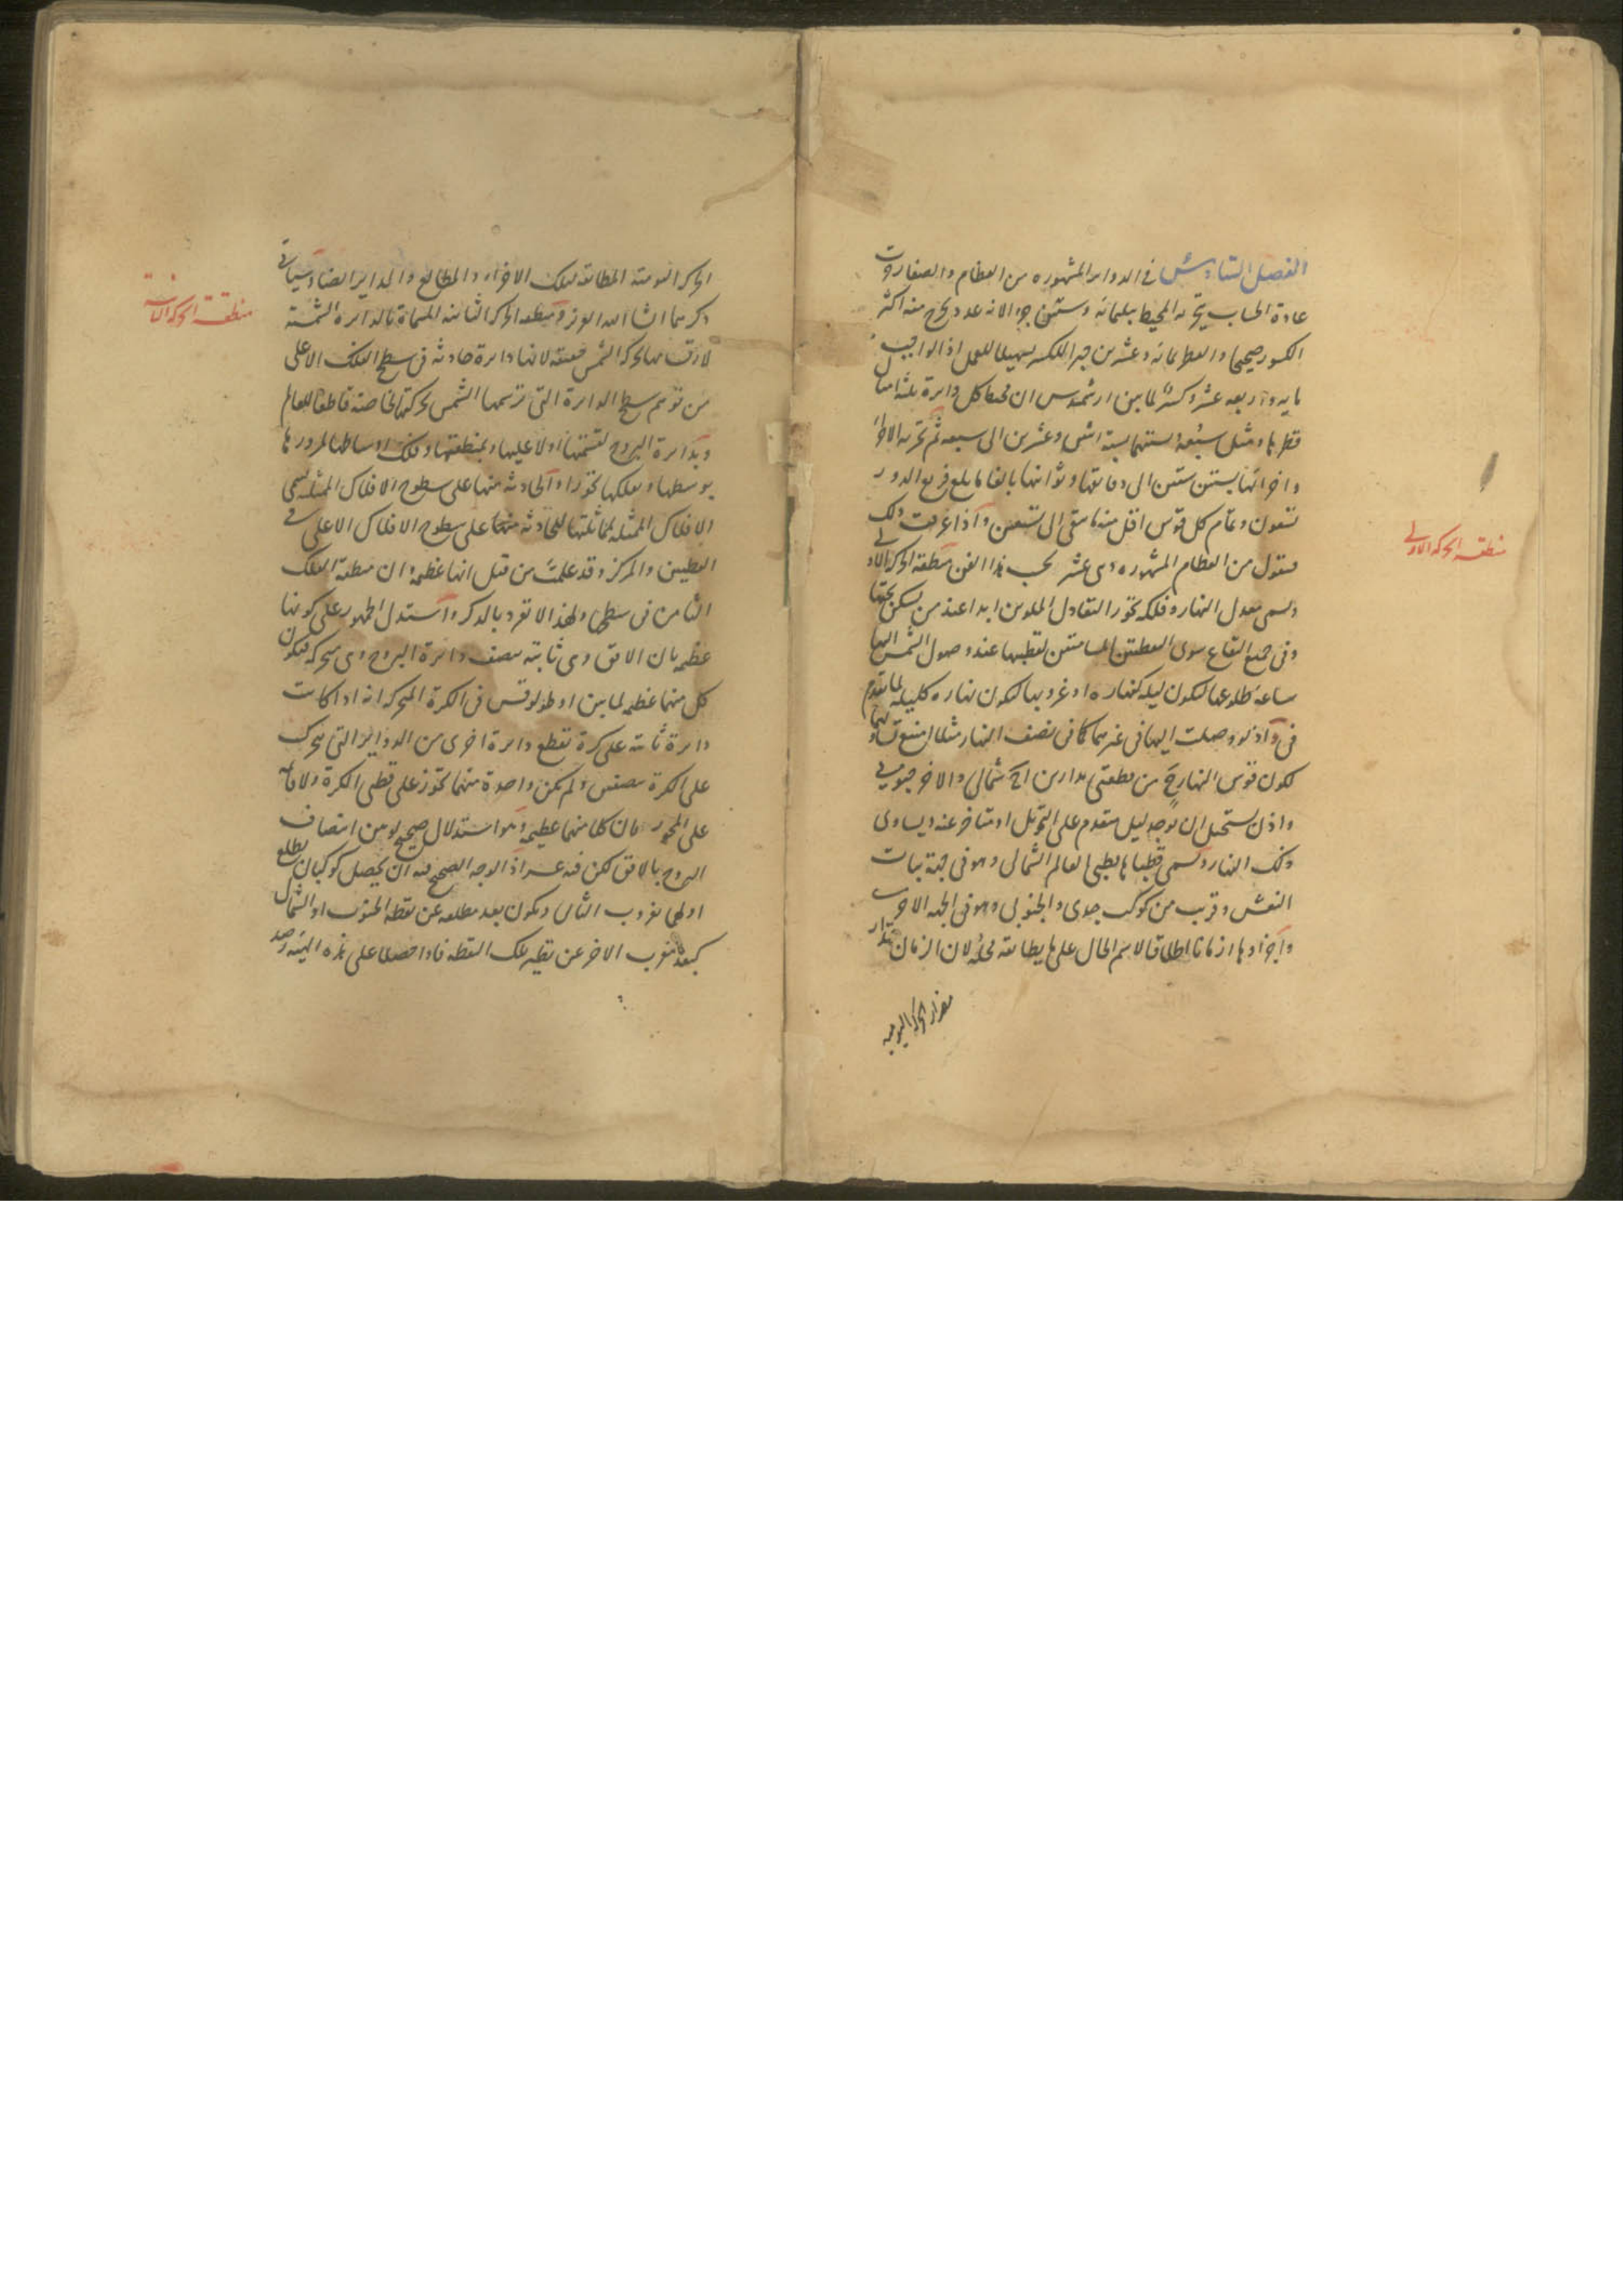 الفصل السادس في الدوائر المشهوره من العظام والصغار وقد جرت
عادة الحساب بتجزئه المحيط بثلمائه وستين جزءا لانه عدد يخرج منه اكثر
الكسور صحيحا والقطر بمائه وعشرين جبرا للكسر تسهيلا للعمل اذ الواجب
مايه واربعه عشر وكسر لما بين ارشميدس ان محيط كل دايرة ثلثه امثال
قطرها ومثل سبعه ثم تجزئه الاجزاء
واجزائها بستين ستين الى دقائقها وثوانيها بالغا ما بلغ فربع الدور
تسعون وتمام كل قوس اقل منه ما بقى الى تسعين واذا عرفت ذلك
فنقول من العظام المشهوره وهى عشر بحسب هذا الفن منطقه الحركه الاولى
وتسمى معدل النهار وفلكه تجوزا لتعادل الملوين ابدا عند من يسكن تحتها
وفى جميع البقاع سوى النقطتين المسامتتين لقطبيها عند وصول الشمس اليها
ساعه طلوعها لتكون ليله كنهاره او غروبها لتكون نهاره كليله لما تقدم
فى واذ لو وصلت اليها فى غيرهما كما فى نصف النهار مثلا امتنع تساويهما
لكون قوس النهار ح من قطعتى مدارين احدهما شمالى والاخر جنوبى
واذن يستحيل ان يوجد ليل متقدم على التحويل او متاخر عنه ويساوى
ذلك النهار وتسمى قطباها بقطبى العالم الشمالى وهو فى جهة بنات
النعش وقريب من كوكب جدى والجنوبى وهو فى الجهه الاخرى
واجزاؤها ازمانا اطلاقا لاسم الحال على ما يطابقه محله لان الزمان مقدار
مقدار الحركة اليومية
منطقه الحركه الاولى
الحركه اليوميه المطابقه لتلك الاجزاء والمطالع والمدايرا ايضا وسياتى
ذكرهما ان شاء الله العزيز ومنطقه الحركه الثانيه المسماة بالدايره الشمسيه
لا بحركه الشمس لانها دايرة حادثه فى سطح الفلك الاعلى
من توهم سطح الدايرة التى ترسمها الشمس بحركتها الخاصه قاطعا للعالم
وبدايرة البروج لقسمتها اولا عليها وبمنطقتها وفلك اوساطها لمرورها
بوسطها وبفلكها تجوزا والحادثه منها على سطوح الافلاك الممثله تسمى
الافلاك الممثله لمماثلتها للحادثه منها على سطوح الافلاك الاعلى فى
القطبين والمركز وقد علمت من قبل انها عظيمه وان منطقه الفلك
الثامن فى سطحها ولهذا لا تفرد بالذكر واستدل الجمهور على كونها
عظيمه بان الافق وهى ثابته تنصف دائرة البروج وهى متحركه فتكون
كل منهما عظيمه لما بين اوطولوقس فى الكرة المتحركه انه اذا كانت
دايرة ثابته على كرة تقطع دايرة اخرى من الدواير التى تتحرك
على الكرة بنصفين ولم تكن واحدة منهما تجوز على قطبى الكرة ولا قائمه
على المحور فان كلا منهما عظيمه وهو استدلال صحيح لو من انتصاف
البروج بالافق لكن فيه عسر اذ الوجه الصحيح فيه ان يحصل كوكبان يطلع
اولهما بغروب الثانى ويكون بعد مطلعه عن نقطه الجنوب او الشمال
كبعد مغرب الاخر عن نظيره تلك النقطه فاذا حصلا على هذه الهيئه وجد
منطقة الحركه الثانيه